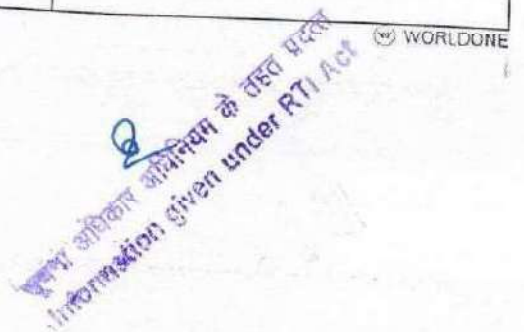 WORLDONE
सूचना अधिकार अधिनियम के तहत प्रदत्त
Information given under RTI Act